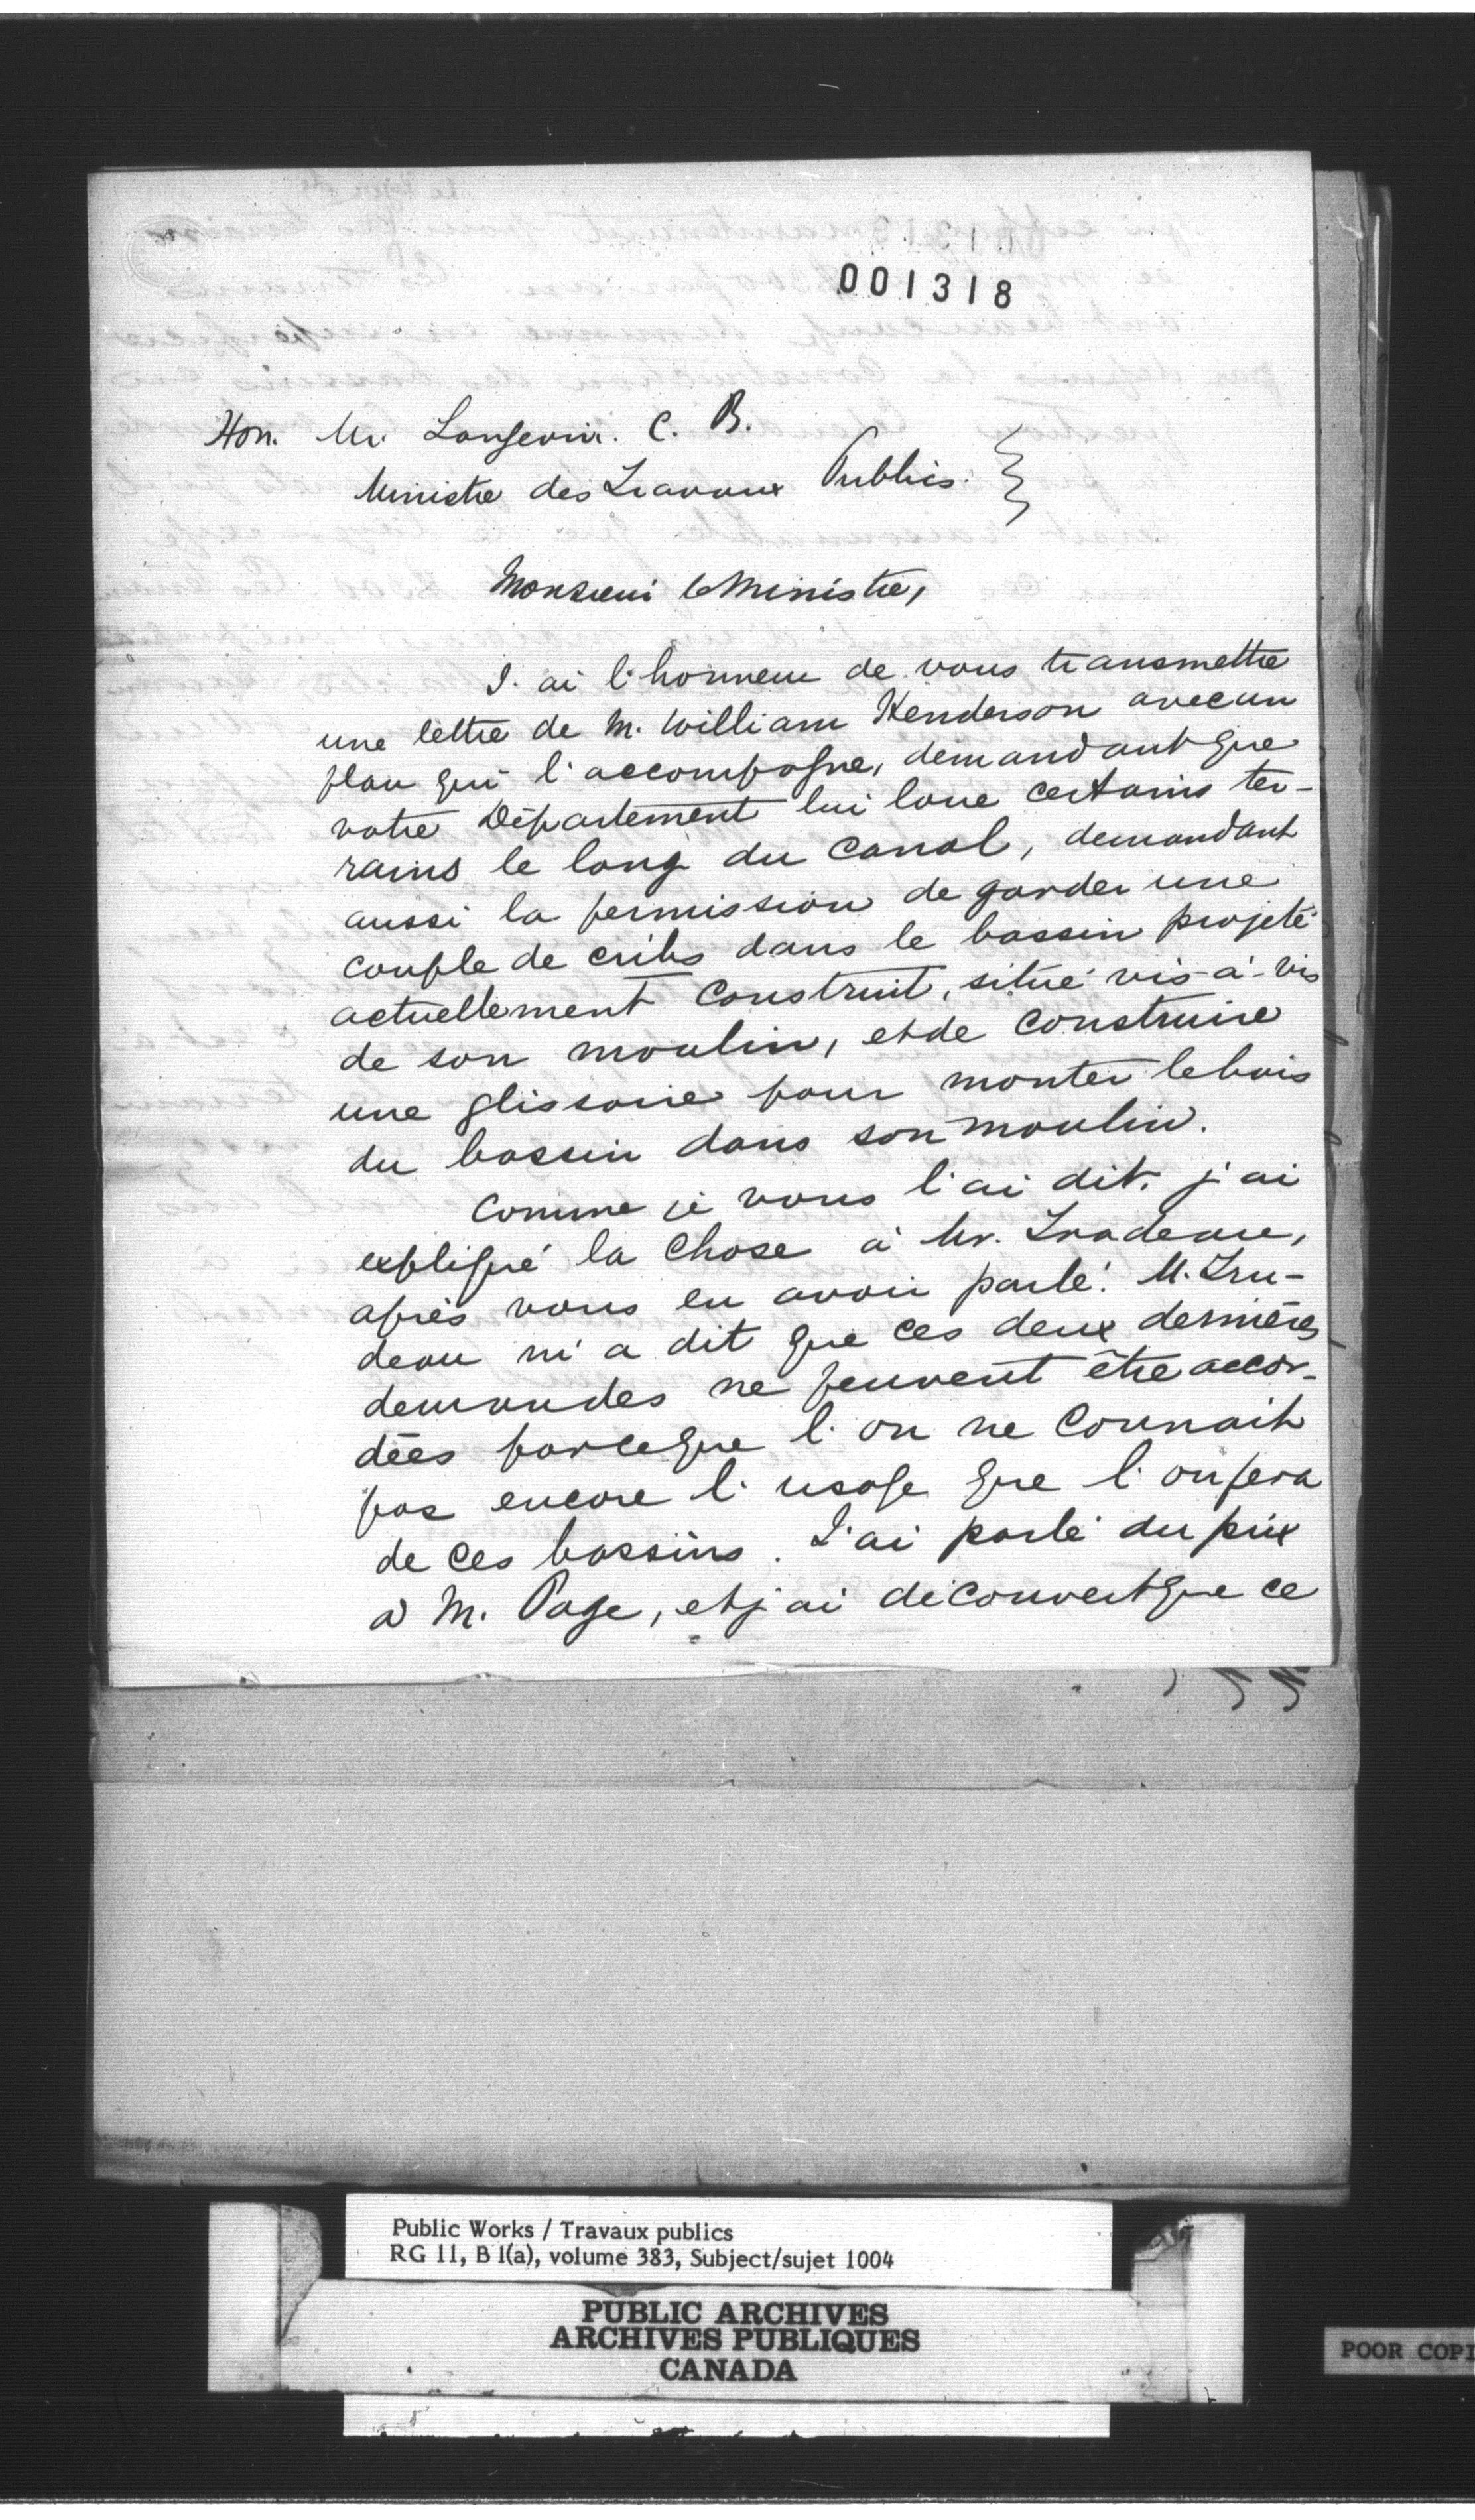 001318
Hon. Mr. Langevin. C. B.
Ministre des Travaux Publics.
Monsieur le Ministre,
J'ai l'honneur de vous transmettre
une lettre de M. William Henderson avec un
plan qui l'accompagne, demandant que
votre Département lui loue certains ter-
rains le long du Canal, demandant
aussi la permission de garder une
couple de cribs dans le bassin projeté
actuellement construit, situé vis-à-vis
de son moulin, et de construire
une glissoire pour monter le bois
du bassin dans son moulin.
Comme je vous l'ai dit, j'ai
expliqué la chose à Mr. Trudeau,
après vous en avoir parlé. M. Tru-
deau m'a dit que ces deux dernières
demandes ne peuvent être accor-
dées parceque l'on ne connait
pas encore l'usage que l'on fera
de ces bassins. J'ai parlé du prix
à M. Page, et j'ai découvert que ce
Public Works / Travaux publics
RG 11, B 1(a), volume 383, Subject/sujet 1004
PUBLIC ARCHIVES
ARCHIVES PUBLIQUES
CANADA
POOR COPI